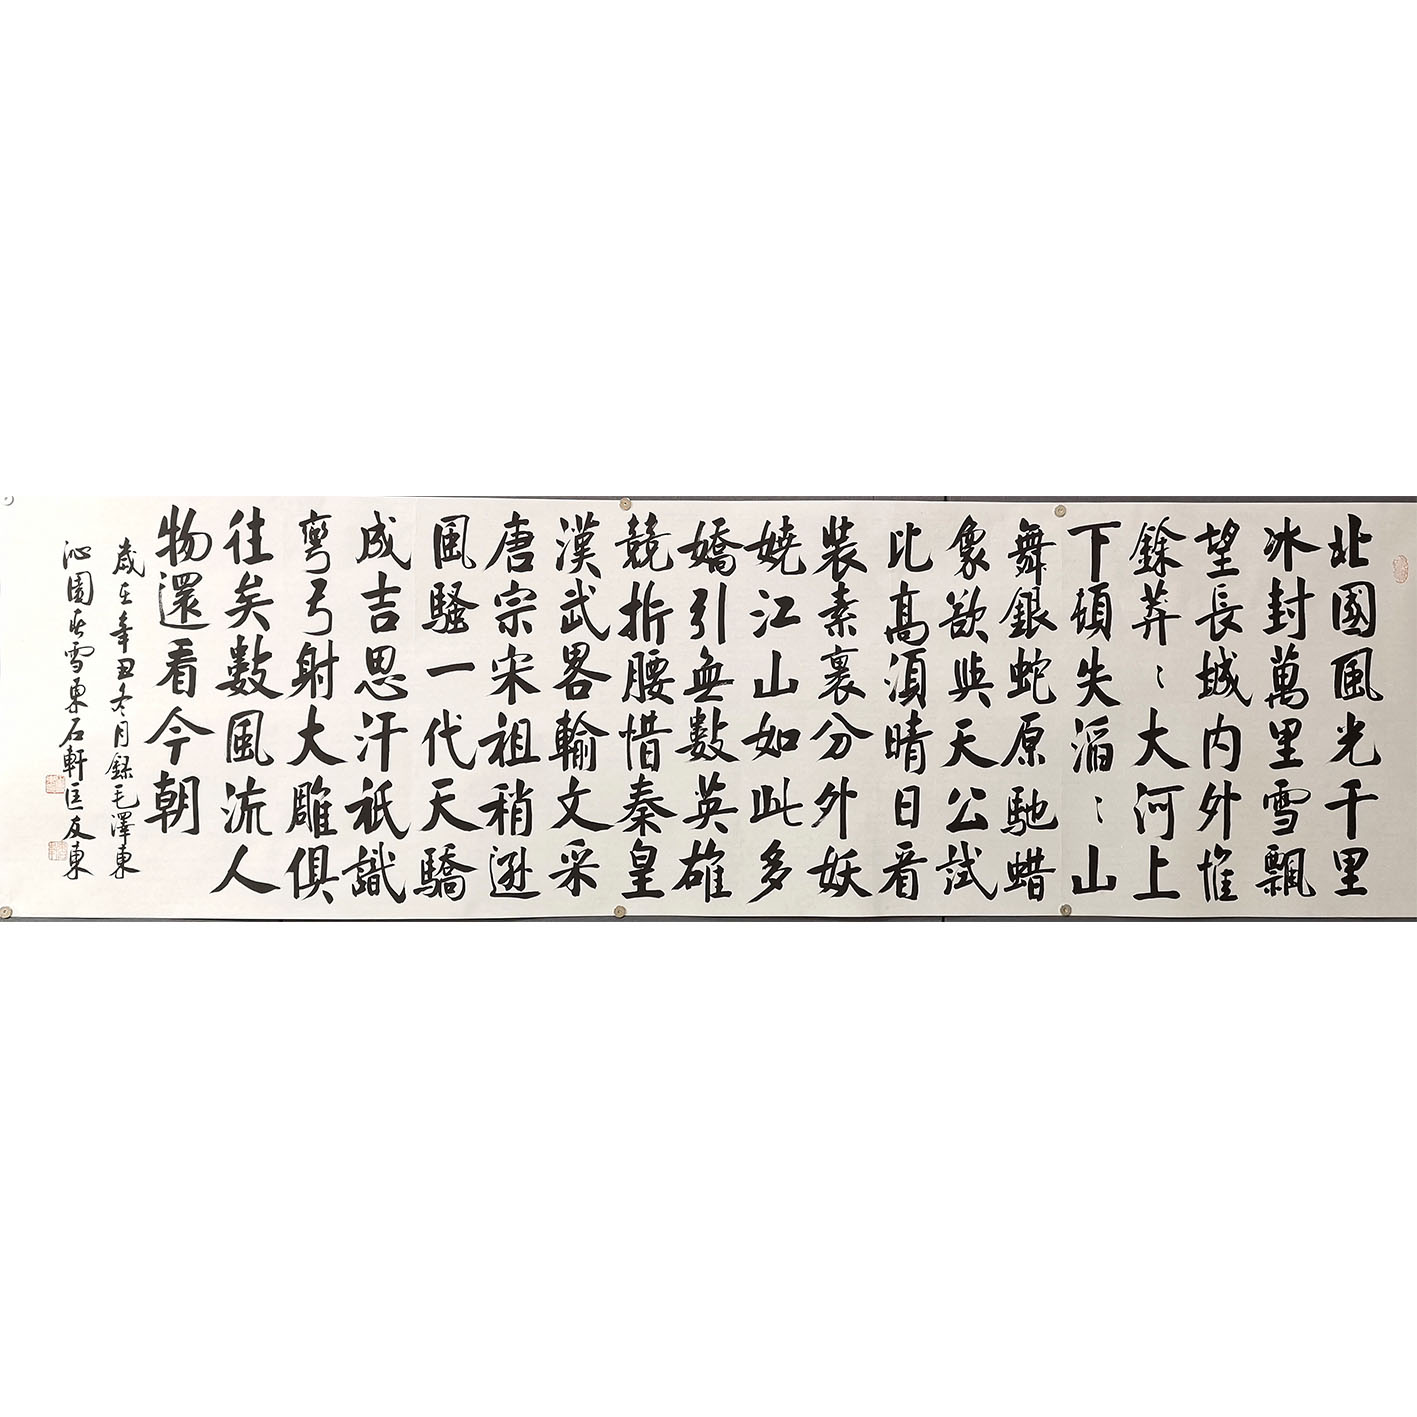 北國風光千里
冰封萬里雪飄
望長城内外惟
餘莽〻大河上
下頓失滔〻山
舞銀蛇原馳蜡
象欲與天公試
比高須晴日看
裝素裹分外妖
嬈江山如此多
嬌引無數英雄
競折腰惜秦皇
漢武畧輸文采
唐宗宋祖稍遜
風騷一代天驕
成吉思汗祇識
彎弓射大雕俱
往矣數風流人
物還看今朝
歲在辛丑冬月錄毛澤東
沁園春雪東石軒匡友東